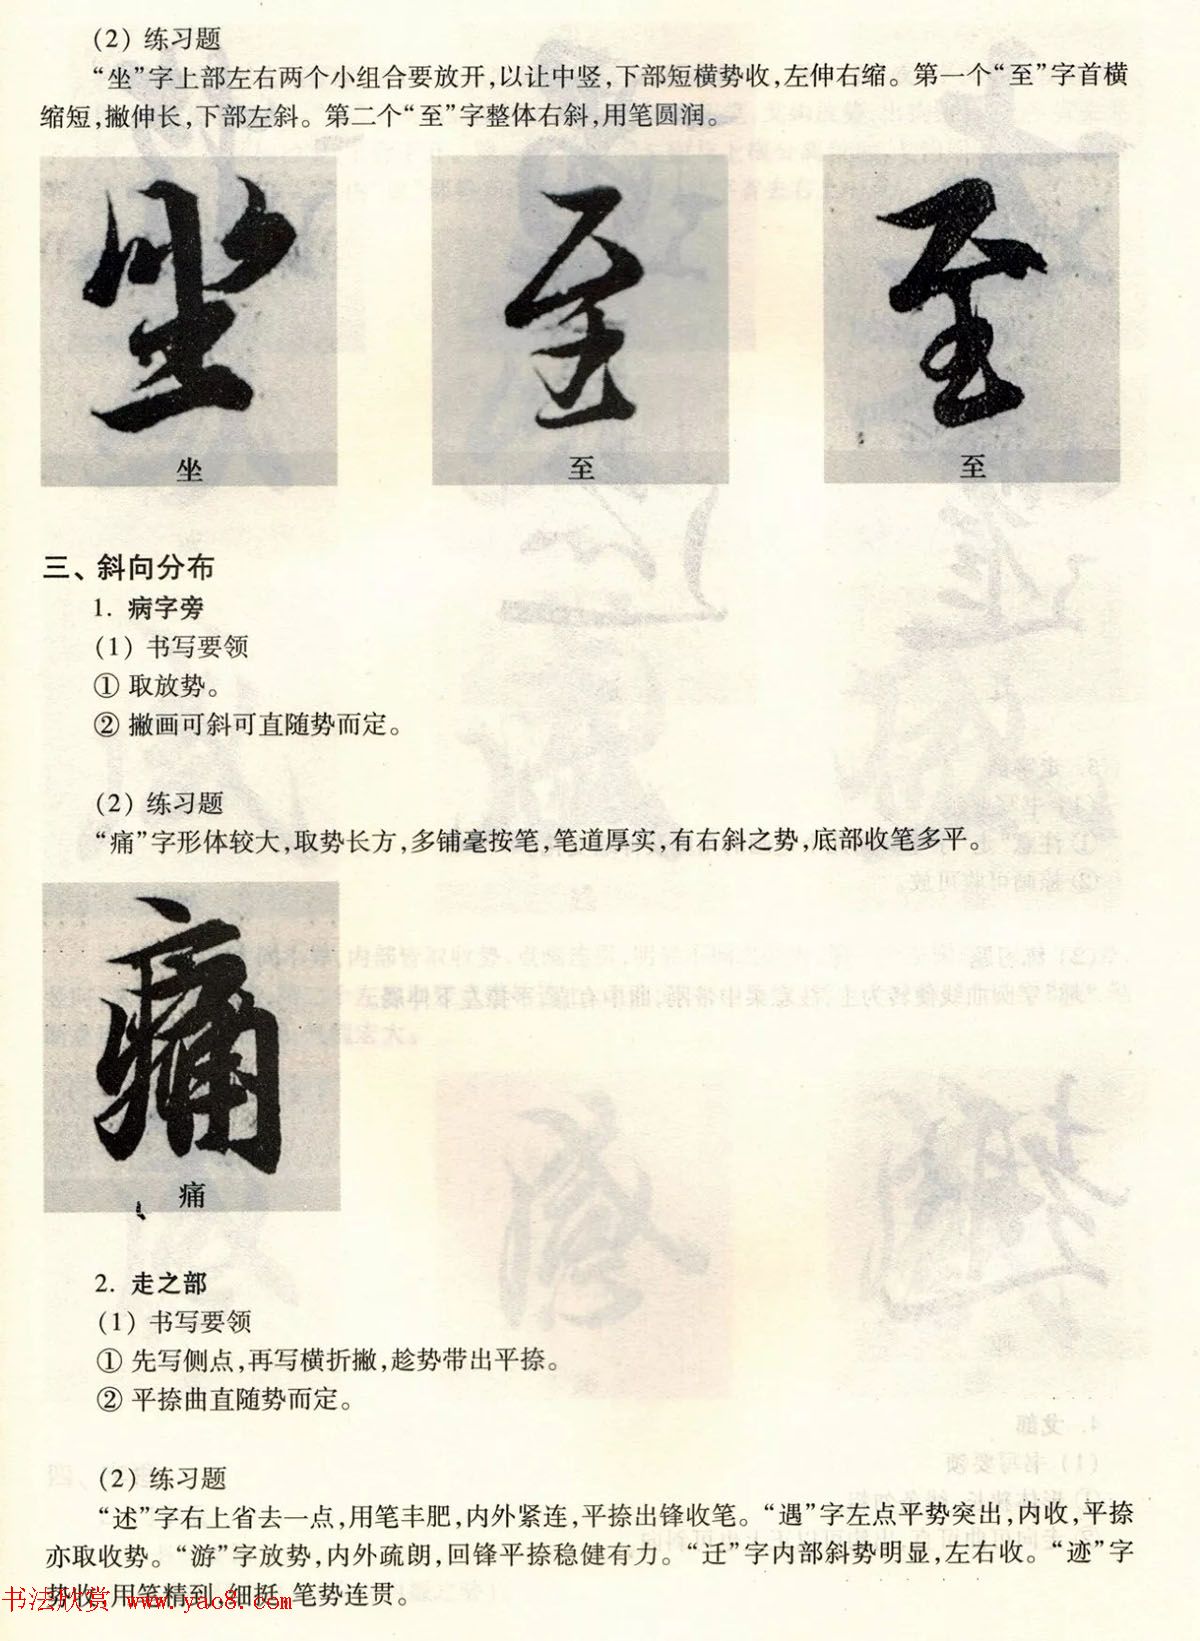 (2) 练习题
“坐”字上部左右两个小组合要放开,以让中竖,下部短横势收,左伸右缩。第一个“至”字首横
缩短,撇伸长,下部左斜。第二个“至”字整体右斜,用笔圆润。
坐 至 至
坐 至 至
三、斜向分布
1. 病字旁
(1) 书写要领
① 取放势。
② 撇画可斜可直随势而定。
(2) 练习题
“痛”字形体较大,取势长方,多铺毫按笔,笔道厚实,有右斜之势,底部收笔多平。
痛
痛
2. 走之部
(1) 书写要领
① 先写侧点,再写横折撇,趁势带出平捺。
② 平捺曲直随势而定。
(2) 练习题
“述”字右上省去一点,用笔丰肥,内外紧连,平捺出锋收笔。“遇”字左点平势突出,内收,平捺
亦取收势。“游”字放势,内外疏朗,回锋平捺稳健有力。“迁”字内部斜势明显,左右收。“迹”字
势收,用笔精到,细挺,笔势连贯。
书法欣赏 www.yac8.com